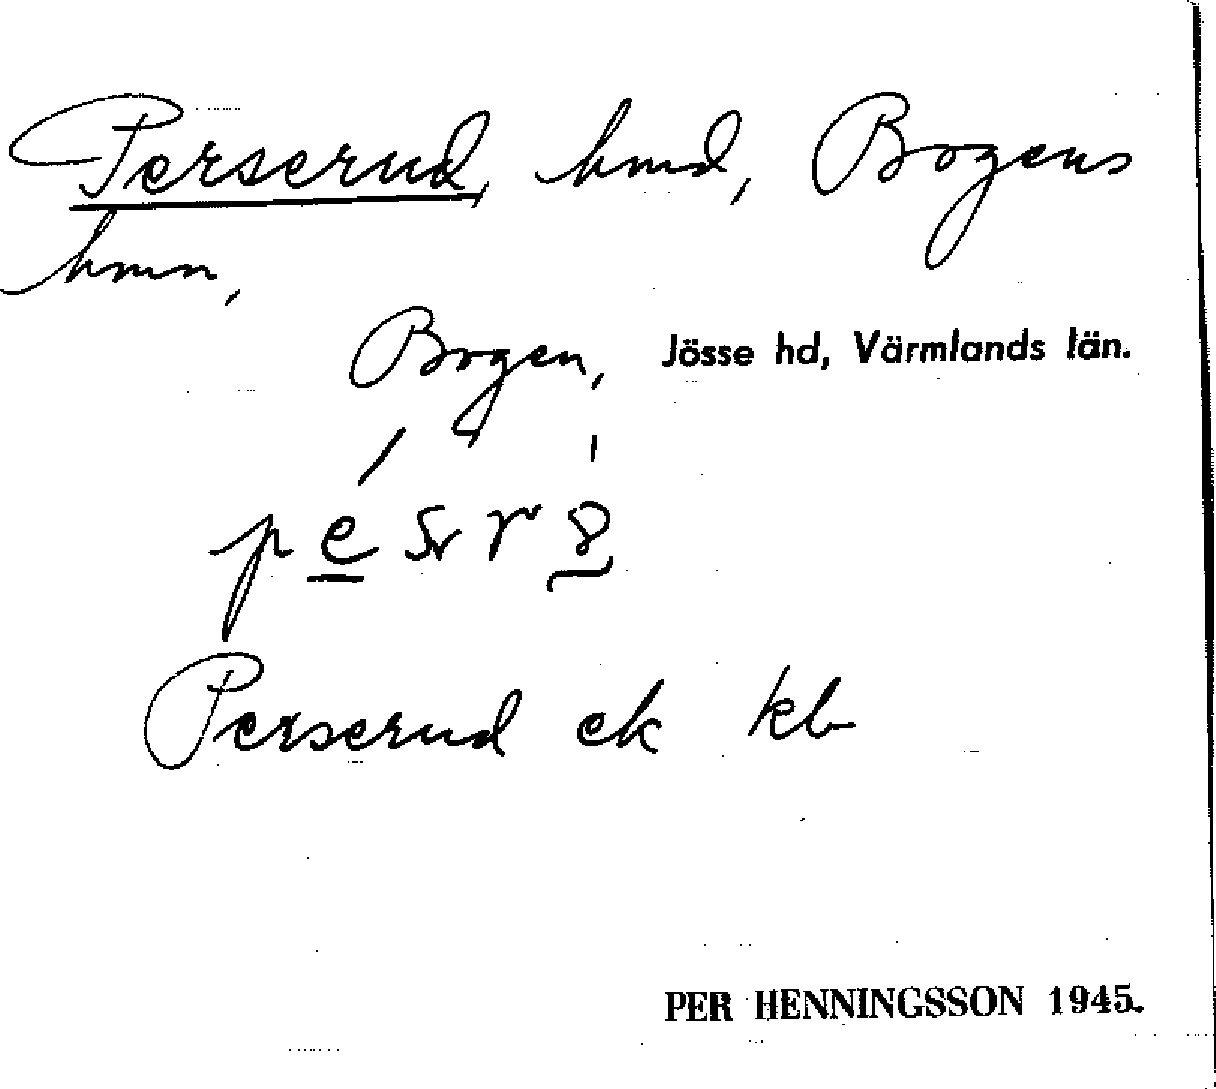 Perserud, hmd, Bogens
hmn,
Bogen, Jösse hd, Värmlands län.
Perserud ek kb
PER HENNINGSSON 1945.